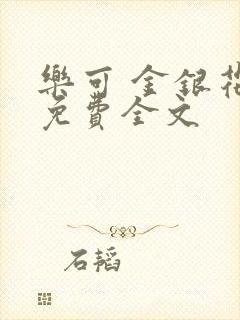 樂可 金銀花
免費全文
石韬